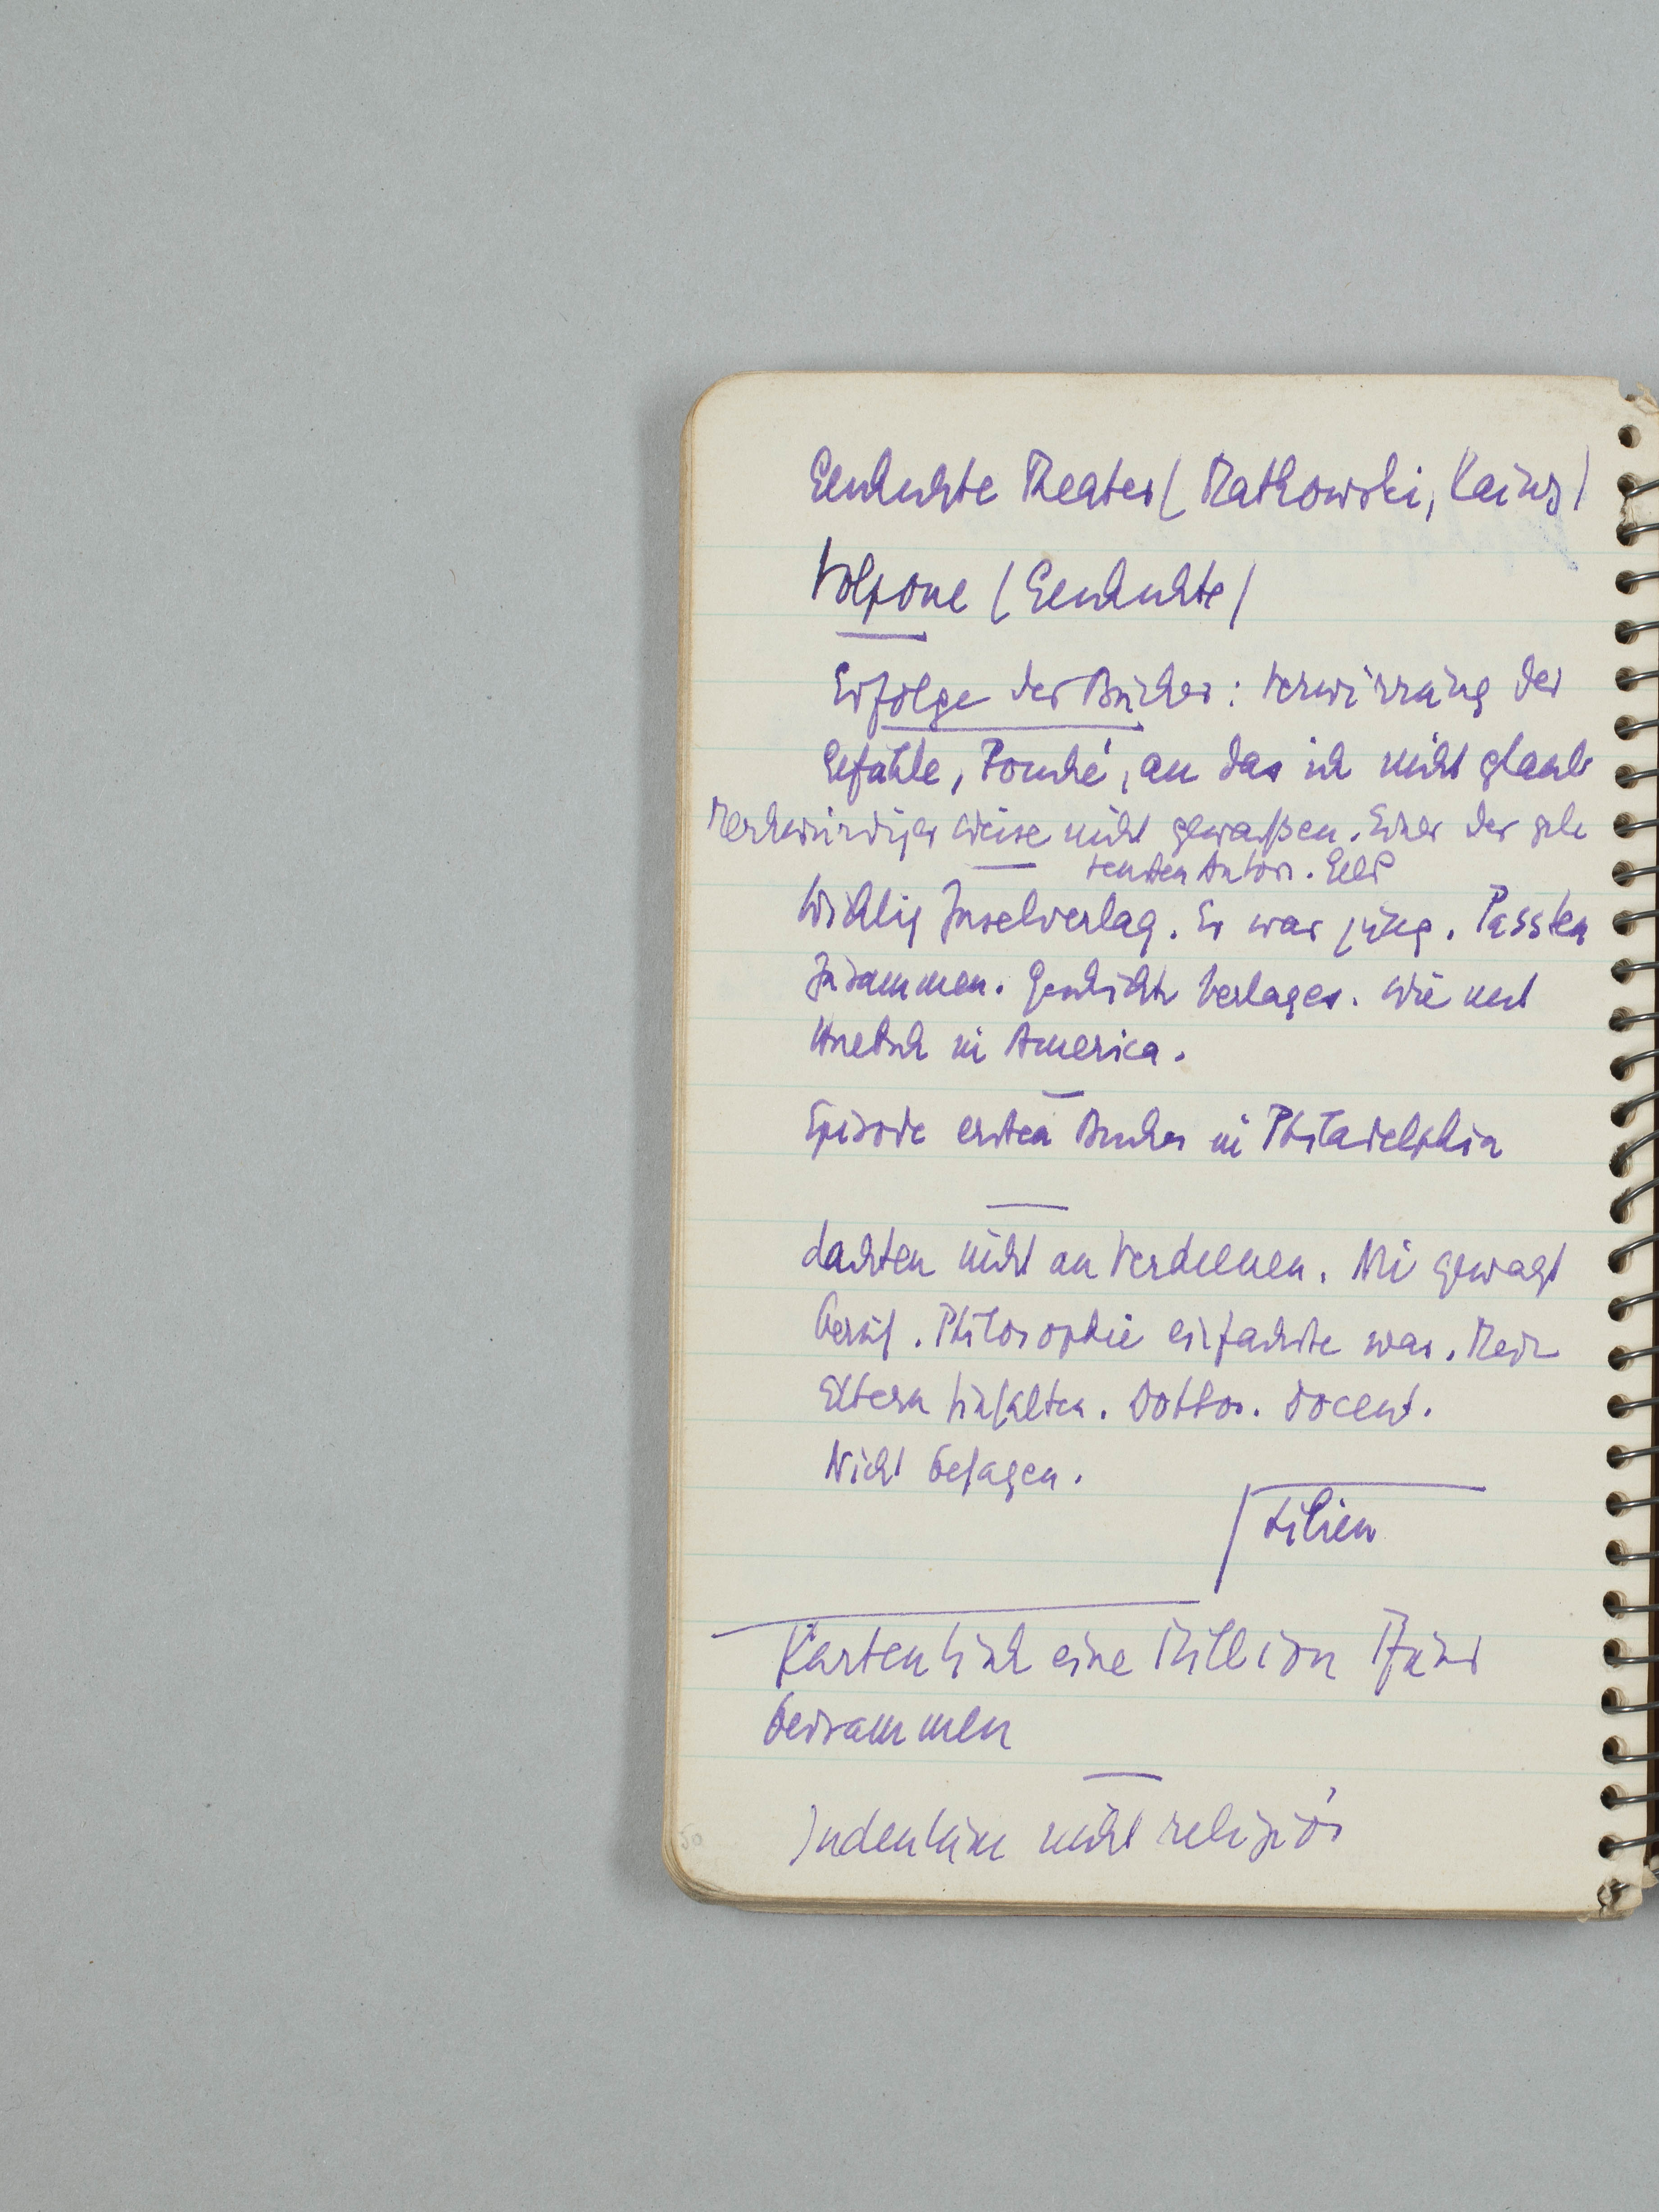 Geschichte Theater (Matkowski, Kainz)
Volpone (Geschichte)
Erfolge der Bücher: Verwirrung der
Gefühle, Fouché, an das ich nicht glaub
Merkwürdiger Weise nicht gewachsen. Einer der gele
sensten Autor. Geld
Wichtig Inselverlag. Er war jung. Passten
zusammen. Geschichte Verlages. Wie mit
Huebsch in America.
Episode ersten Buches in Philadelphia
dachten nicht an Verdienen. Nie gewagt
Beruf. Philosophie einfachste war. Mein
Eltern hinhalten. Doktor. Docent.
Nicht behagen.
Lilien
Kartentisch eine Million
beisammen
Judentum nicht religiös
50